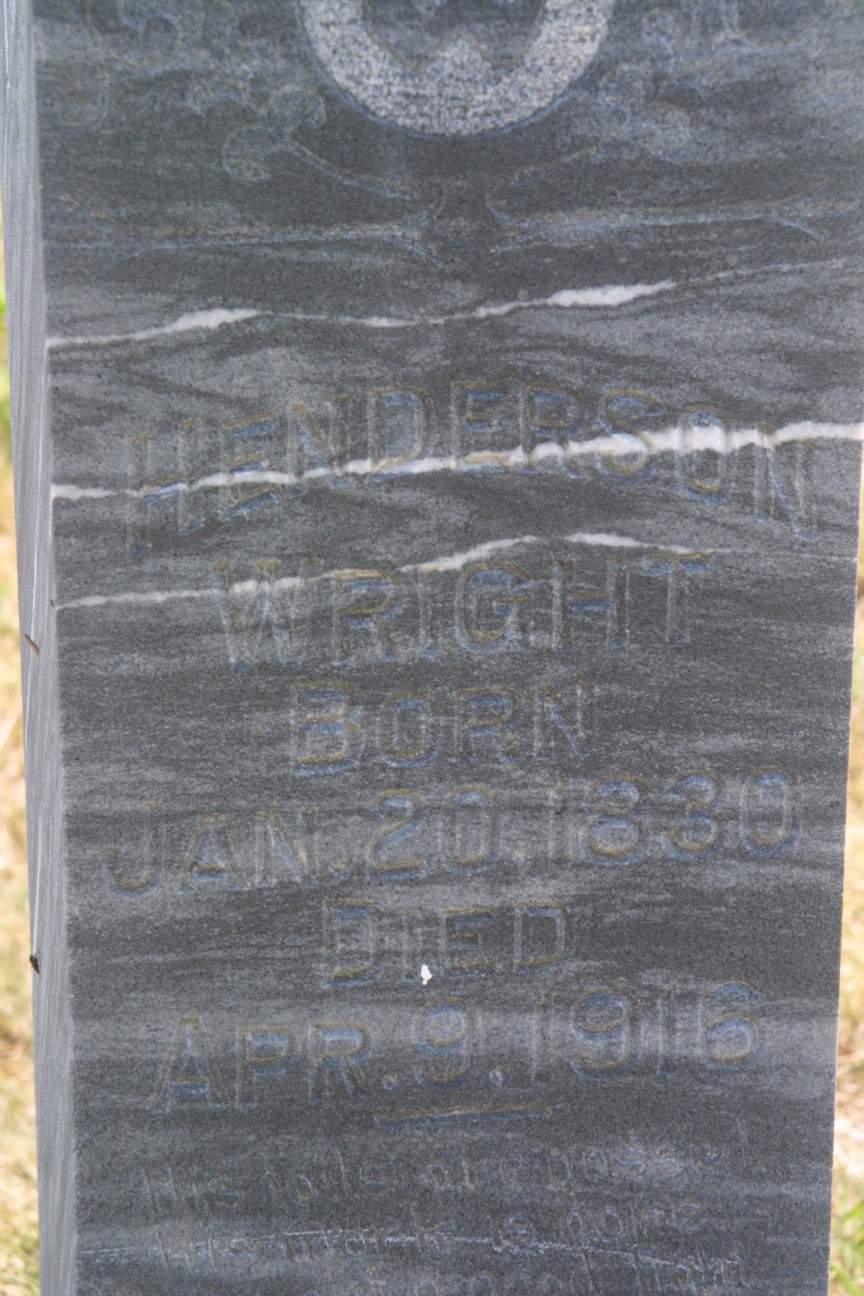 W
HENDERSON
WRIGHT
BORN
JAN. 20. 1830
DIED
APR. 9. 1916
His toils are past,
His work is done.